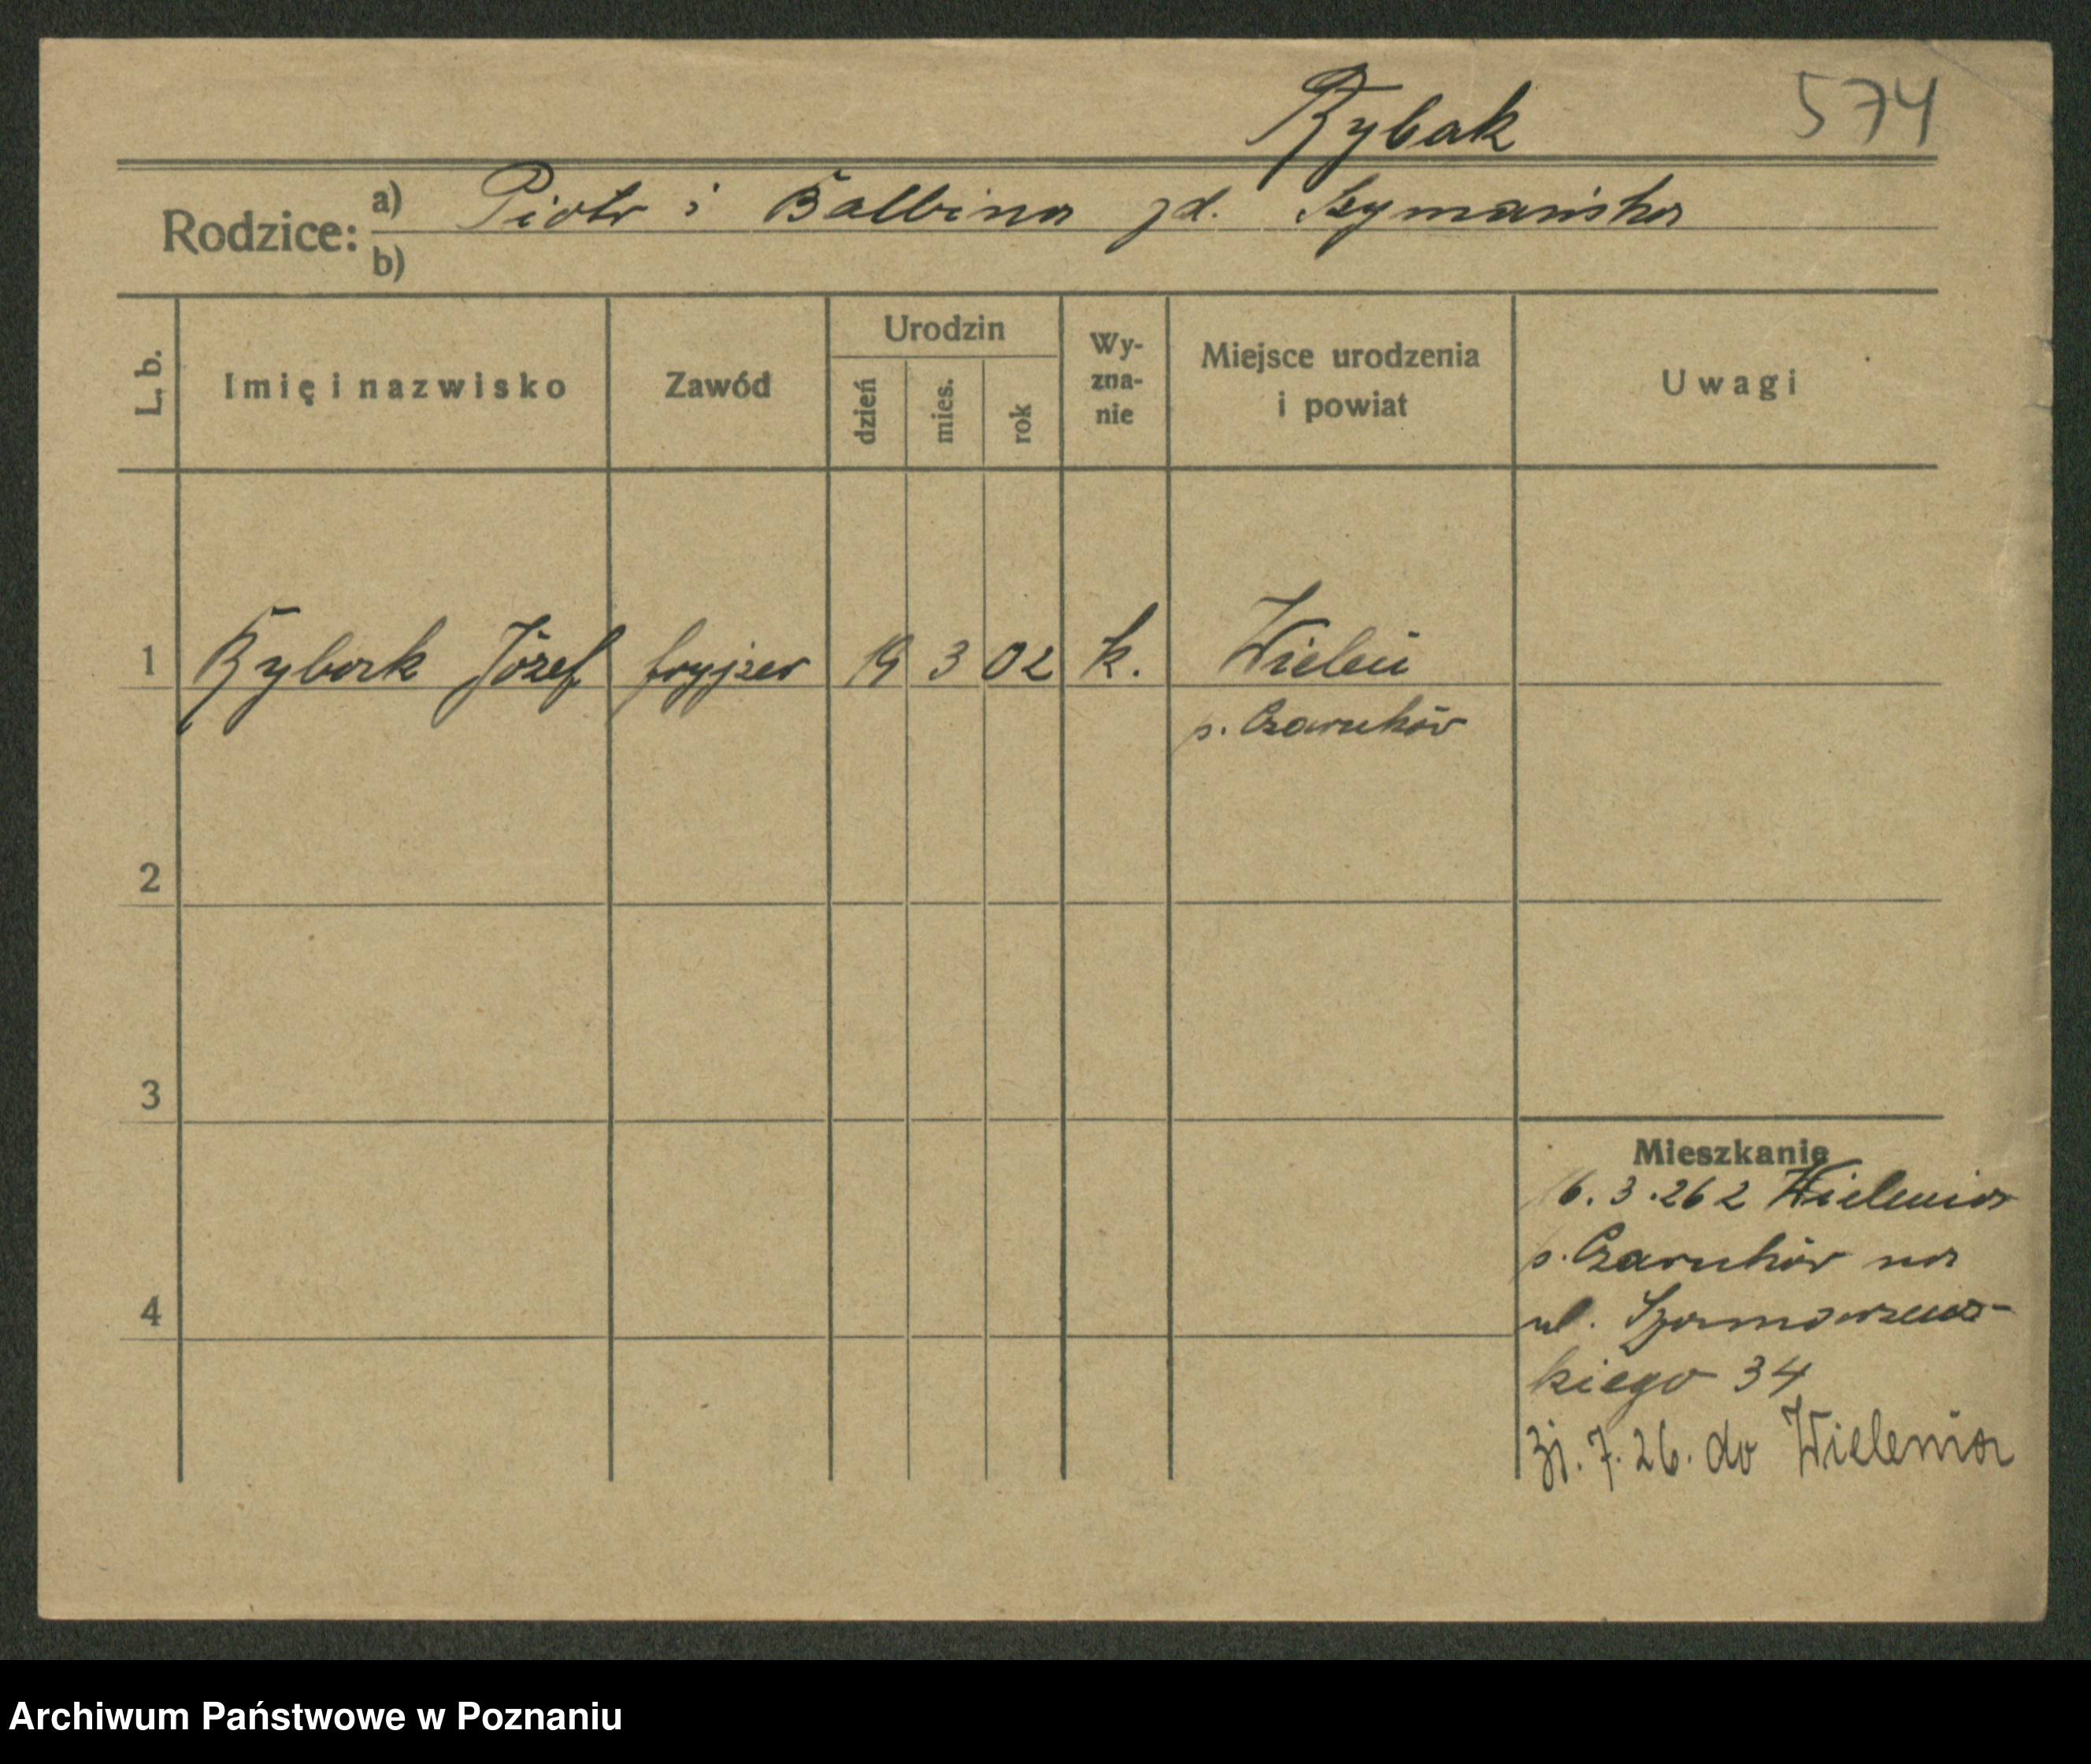 Rybak 574
Rodzice: a) Piotr i Balbina zd. Szymańska
b)
L. b. Imię i nazwisko Zawód Urodzin dzień mies. rok Wy-zna-nie Miejsce urodzenia i powiat Uwagi
1 Rybak Józef fryzjer 19 3 02 k. Wieleń
p. Czarnków
2
3
Mieszkanie
16.3.26 z Wielenia
p. Czarnków na
4
ul. Szamarzews-
kiego 34
31.7.26. do Wielenia
Archiwum Państwowe w Poznaniu